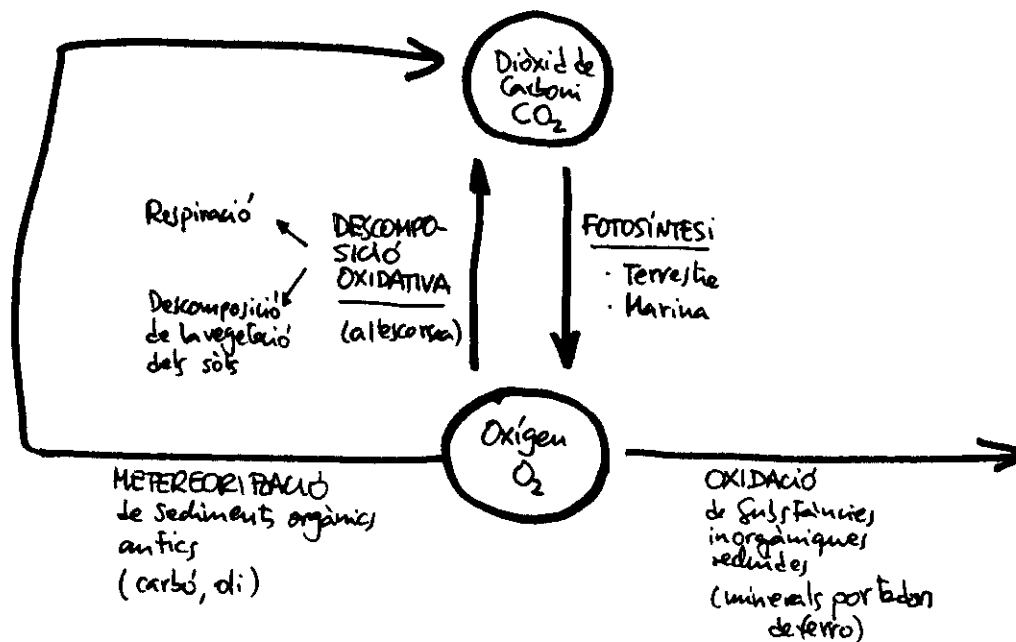 Diòxid de
Carboni
CO₂
Respiració
Descomposició
de la vegetació
dels sòls
DESCOMPO-
SICIÓ
OXIDATIVA
(a l'escorsa)
FOTOSÍNTESI
· Terrestre
· Marina
Oxígen
O₂
METEREORITZACIÓ
de sediments orgànics
antics
(carbó, oli)
OXIDACIÓ
de substàncies
inorgàniques
reduïdes
(minerals portadors
de ferro)